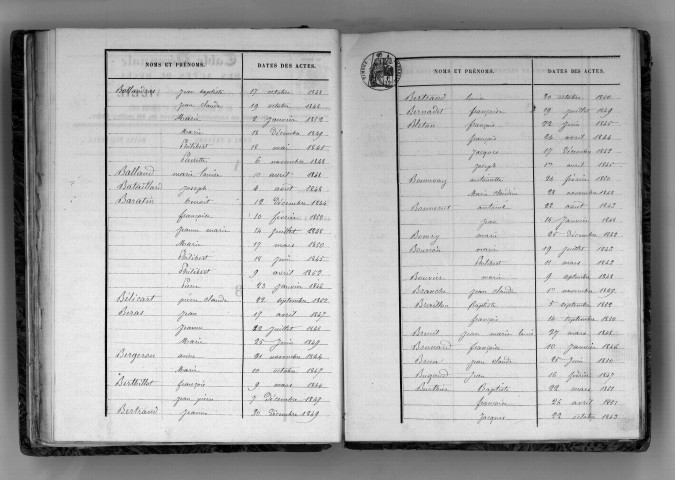 NOMS ET PRÉNOMS. DATES DES ACTES.
jean baptiste 17 octobre 1848
jean claude 19 octobre 1848
Marie 2 janvier 1852
Marie 18 Décembre 1849
Philibert 18 mai 1845
Pierrette 6 novembre 1848
Balland marie louise 10 avril 1848
Bataillard joseph 4 août 1848
Baratin benoit 12 Décembre 1844
françoise 10 février 1850
jeanne marie 14 juillet 1848
Marie 17 mars 1850
Philibert 18 juin 1845
Philibert 9 avril 1852
Pierre 23 janvier 1846
Bélicart pierre claude 22 septembre 1852
Beras jean 17 avril 1847
jeanne 22 juillet 1848
Marie 25 juin 1849
Bergeron 21 novembre 1844
Marie 10 octobre 1847
Berthillot françois 9 mars 1844
jean pierre 7 Décembre 1849
Bertrand jeanne 30 Décembre 1849
NOMS ET PRÉNOMS. DATES DES ACTES.
Bertrand louis 20 octobre 1850
Bernadet françoise 19 juillet 1849
Bleton françois 22 juin 1845
françois 24 avril 1844
jacques 17 Décembre 1852
joseph 1er avril 1845
antoinette 24 février 1850
Marie claudine 28 novembre 1848
22 août 1843
jean 14 janvier 1848
marie 25 Décembre 1852
marie 19 juillet 1843
Philibert 11 mars 1842
Bouvier marie 9 septembre 1848
Branche jean claude 1er novembre 1849
Braillon Baptiste 5 septembre 1852
françois 14 septembre 1850
Breuil jean marie louis 27 mars 1848
françoise 10 janvier 1846
jean claude 25 juin 1850
Bugaud jean 16 février 1847
Baptiste 22 mars 1851
françoise 25 avril
jacques 22 octobre 1843